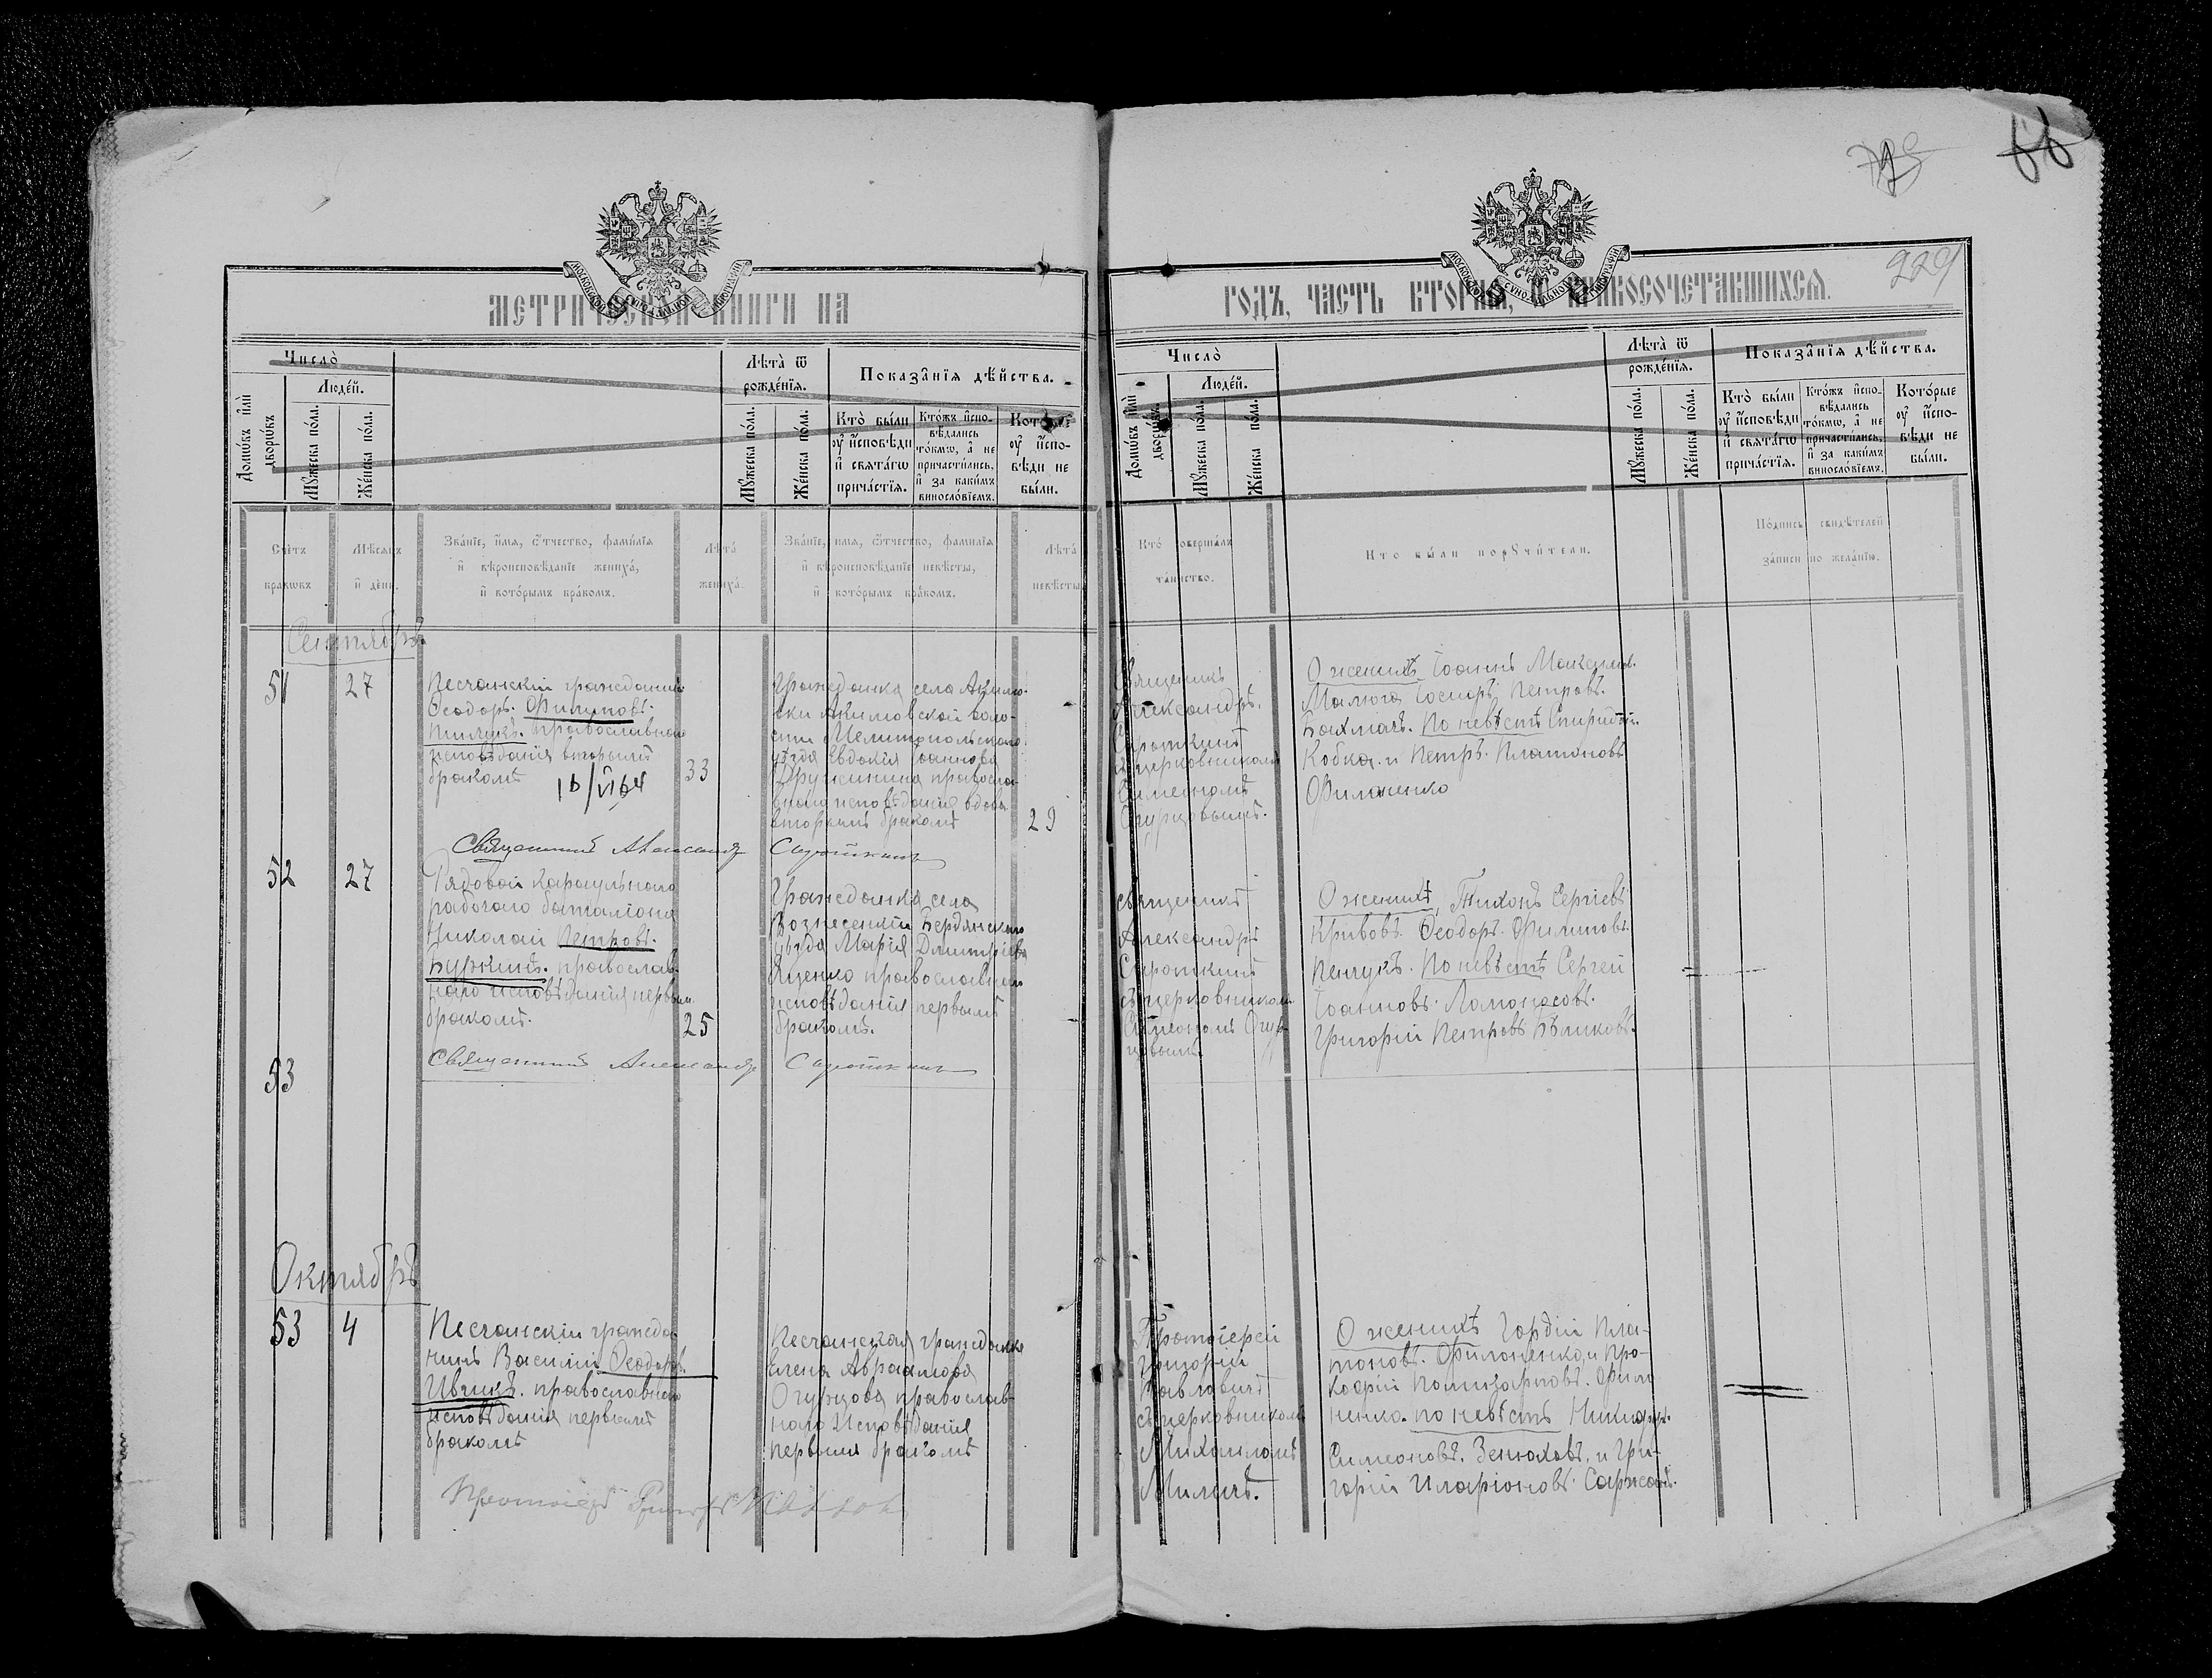 229
МЕТРИЧЕСКОЙ КНИГИ НА
ГОДЪ, ЧАСТЬ ВТОРАЯ,
Число̀
Людей.
Домѡвъ и҆лѝ дворѡвъ
Мꙋжеска пола.
Женска пола.
Лѣта̀ ѿ рожденїѧ.
Мꙋжеска пола.
Женска пола.
Показанїѧ дѣйства.
Кто̀ были ᲂу҆ и҆сповѣди и҆ свѧтагѡ причастїѧ.
Кто́жъ и҆сповѣдались то́кмѡ, а҆ не причастились, и҆ за какимъ винословїемъ.
Которые ᲂу҆ и҆сповѣди не были.
Число̀
Людей.
Домѡвъ и҆лѝ дворѡвъ
Мꙋжеска пола.
Женска пола.
Лѣта̀ ѿ рожденїѧ.
Мꙋжеска пола.
Женска пола.
Показанїѧ дѣйства.
Кто̀ были ᲂу҆ и҆сповѣди и҆ свѧтагѡ причастїѧ.
Кто́жъ и҆сповѣдались то́кмѡ, а҆ не причастились, и҆ за какимъ винословїемъ.
Которые ᲂу҆ и҆сповѣди не были.
Счетъ браковъ
Мѣсяцъ и день.
Званіе, имя, отчество, фамилія
и вѣроисповѣданіе жениха,
и которымъ бракомъ.
Лѣта жениха.
Званіе, имя, отчество, фамилія
и вѣроисповѣданіе невѣсты,
и которымъ бракомъ.
Лѣта невѣсты
Кто совершалъ таинство.
Кто были поручители.
Подпись свидѣтелей
записи по желанію.
Сентябрь
51
27
Песчанскій гражданинъ
Ѳеодоръ Филиповъ
православнаго
исповѣданія вторымъ
бракомъ
33
Гражданка села Акимо-
вки Акимовской воло-
сти Мелитопольскаго
уѣзда Евдокія Іоаннова
Дружинина правосла-
внаго исповѣданія вдова
вторымъ бракомъ
29
Священникъ
Александръ
Сироткинъ
съ церковникомъ
Симеономъ
Огурцовымъ.
О женихѣ Іоаннъ Максимов.
Малюга Іосифъ Петровъ.
Бахмачъ. По невѣстѣ Спиридон.
Кобка и Петръ Платоновъ
Филоненко
Священникъ Александр Сироткинъ
52
27
Рядовой караульнаго
рабочаго баталіона
Николай Петровъ.
православ-
наго исповѣданія первым
бракомъ.
25
Гражданка села
Вознесенки Бердянскаго
уѣзда Марія Димитріева
Яценко православнаго
исповѣданія первымъ
бракомъ.
священникъ
Александръ
Сироткинъ
съ церковникомъ
Симеономъ Огур-
цовымъ.
О женихѣ, Тихонъ Сергіевъ
Кривовъ. Ѳеодоръ Филиповъ.
По невѣстѣ Сергей
Іоанновъ Ломоносовъ.
Григорій Петровъ Бѣликовъ.
Священникъ Александр Сироткинъ
53
Октябрь
53
4
Песчанскій гражда-
нинъ Василій Ѳеодоров.
Ивчикъ. православнаго
исповѣданія первымъ
бракомъ
Песчанская гражданка
Елена Авраамова
Огурцова православ-
наго Исповѣданія
первымъ бракомъ
Протоіерей
Григорій
Павловичъ
съ церковникомъ
Михаиломъ
О женихѣ Гордій Пла-
тоновъ. Филоненко, и Про-
кофій Поликарповъ. Фило
ненко. по невѣстѣ Никифор.
Симеоновъ. Зенюховъ. и Гри-
горій Иларіоновъ